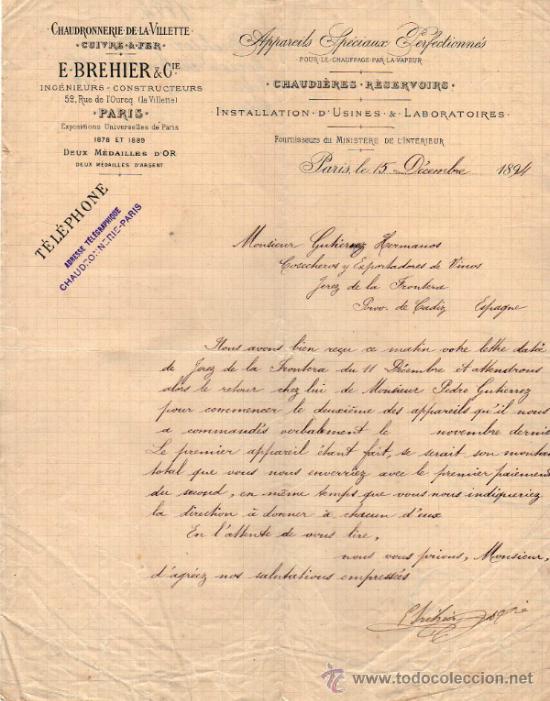 CHAUDRONNERIE DE LA VILLETTE
CUIVRE & FER
E. BREHIER & CIE
INGÉNIEURS - CONSTRUCTEURS
52, Rue de l'Ourcq (la Villette)
PARIS
Expositions Universelles de Paris
1878 ET 1889
DEUX MÉDAILLES D'OR
DEUX MÉDAILLES D'ARGENT
TÉLÉPHONE
ADRESSE TÉLÉGRAPHIQUE
CHAUDRONNERIE-PARIS
Appareils Spéciaux Perfectionnés
POUR LE CHAUFFAGE PAR LA VAPEUR
CHAUDIÈRES - RÉSERVOIRS
INSTALLATION D'USINES & LABORATOIRES
Fournisseurs du MINISTÈRE DE L'INTÉRIEUR
Paris, le 15 Décembre 1894
Monsieur Gutiérrez Hermanos
Cosecheros y Exportadores de Vinos
Jerez de la Frontera
Prov. de Cadiz Espagne
Nous avons bien reçu ce matin votre lettre datée
de Jerez de la Frontera du 11 Décembre et attendrons
alors le retour chez lui de Monsieur Pedro Gutierrez
pour commencer le deuxième des appareils qu'il nous
a commandés verbalement le novembre dernie
Le premier appareil étant fait, ce serait son montan
total que vous nous enverriez avec le premier paiement
du second, en même temps que vous nous indiqueriez
la direction à donner à chacun d'eux
En l'attente de vous lire,
nous vous prions, Monsieur,
d'agréez nos salutations empressées
E Bréhier & Cie
www.todocoleccion.net